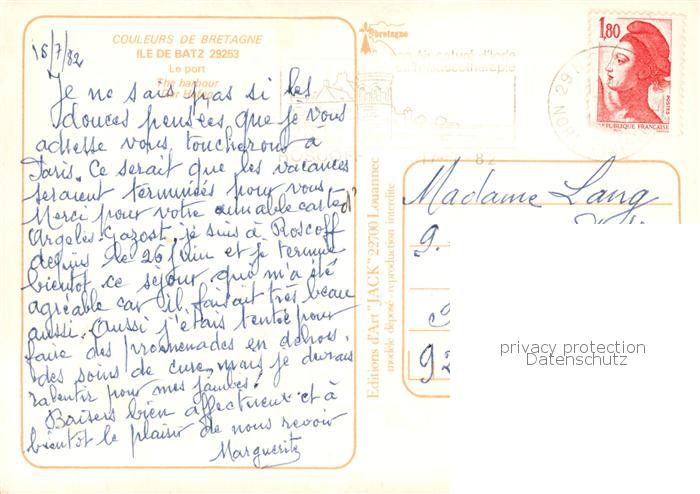 COULEURS DE BRETAGNE
ILE DE BATZ 29253
Le port
The harbour
15/7/82
Je ne sais pas si les
douces pensées que je vous
adresse vous toucherons à
Paris. Ce serait que les vacances
seraient terminées pour vous
Merci pour votre aimable carte d'
Argelès-Gazost, je suis à Roscoff
depuis le 26 juin et je termine
bientôt ce séjour qui m'a été
agréable car il faisait très beau
aussi. Aussi j'étais tentée pour
faire des promenades en dehors
des soins de cure, mais je devrais
ralentir pour mes jambes.
Baisers bien affectueux et à
bientôt le plaisir de nous revoir
Marguerite
Editions d'Art "JACK" 22700 Louannec
modèle déposé - reproduction interdite
bretagne
82
1,80
POSTES
REPUBLIQUE FRANÇAISE
Madame Lang
9
92
privacy protection
Datenschutz